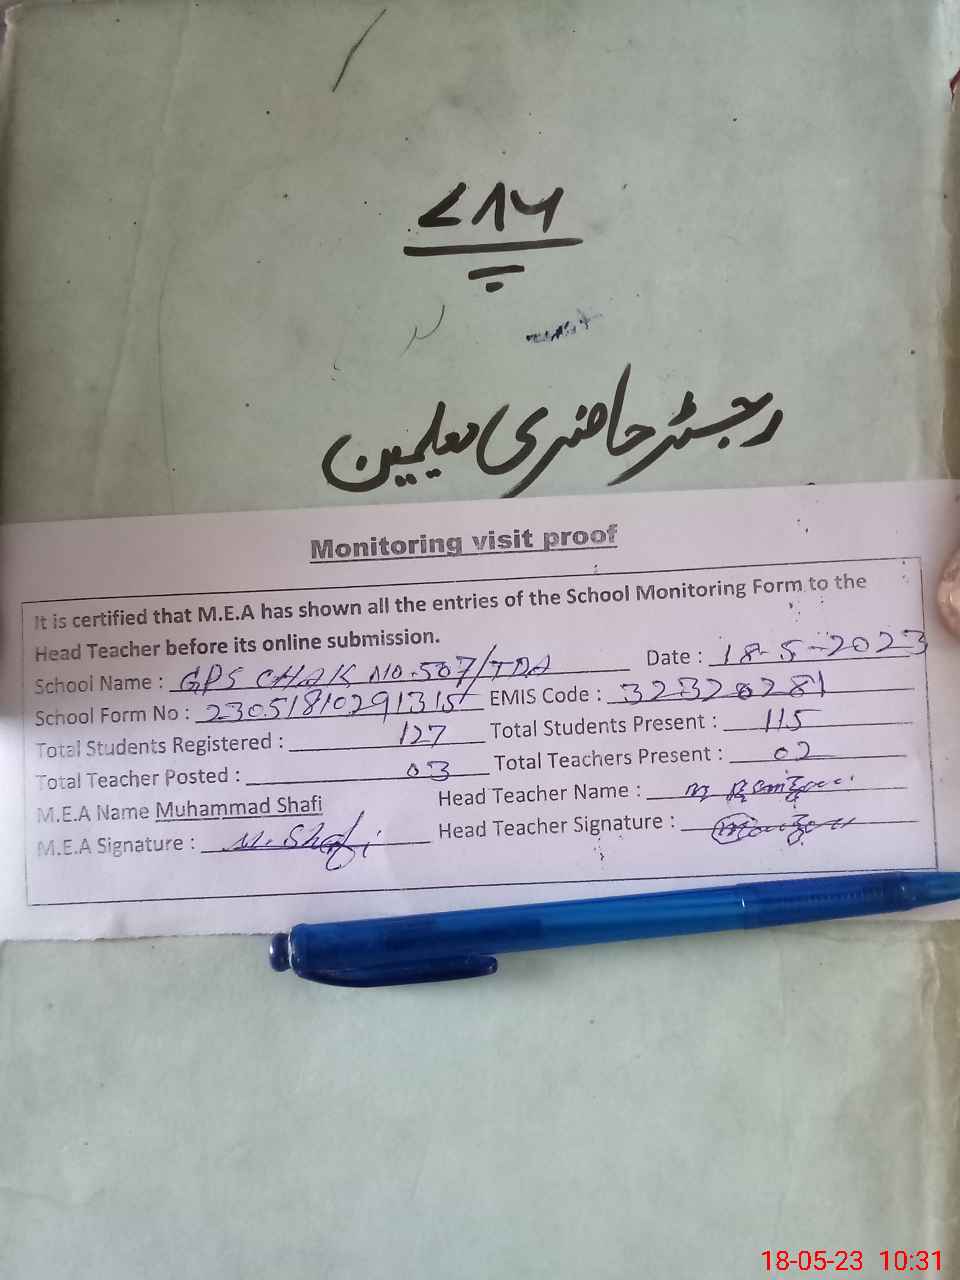 ۷۸۶
رجسٹر حاضری معلمین
Monitoring visit proof
It is certified that M.E.A has shown all the entries of the School Monitoring Form to the
Head Teacher before its online submission.
School Name : GPS CHAK NO. 507/TDA Date : 18-5-2023
School Form No : 23051810291315 EMIS Code : 32320281
Total Students Registered : 127 Total Students Present : 115
Total Teacher Posted : 03 Total Teachers Present : 02
M.E.A Name Muhammad Shafi Head Teacher Name : M
M.E.A Signature : M. Shafi Head Teacher Signature :
18-05-23 10:31